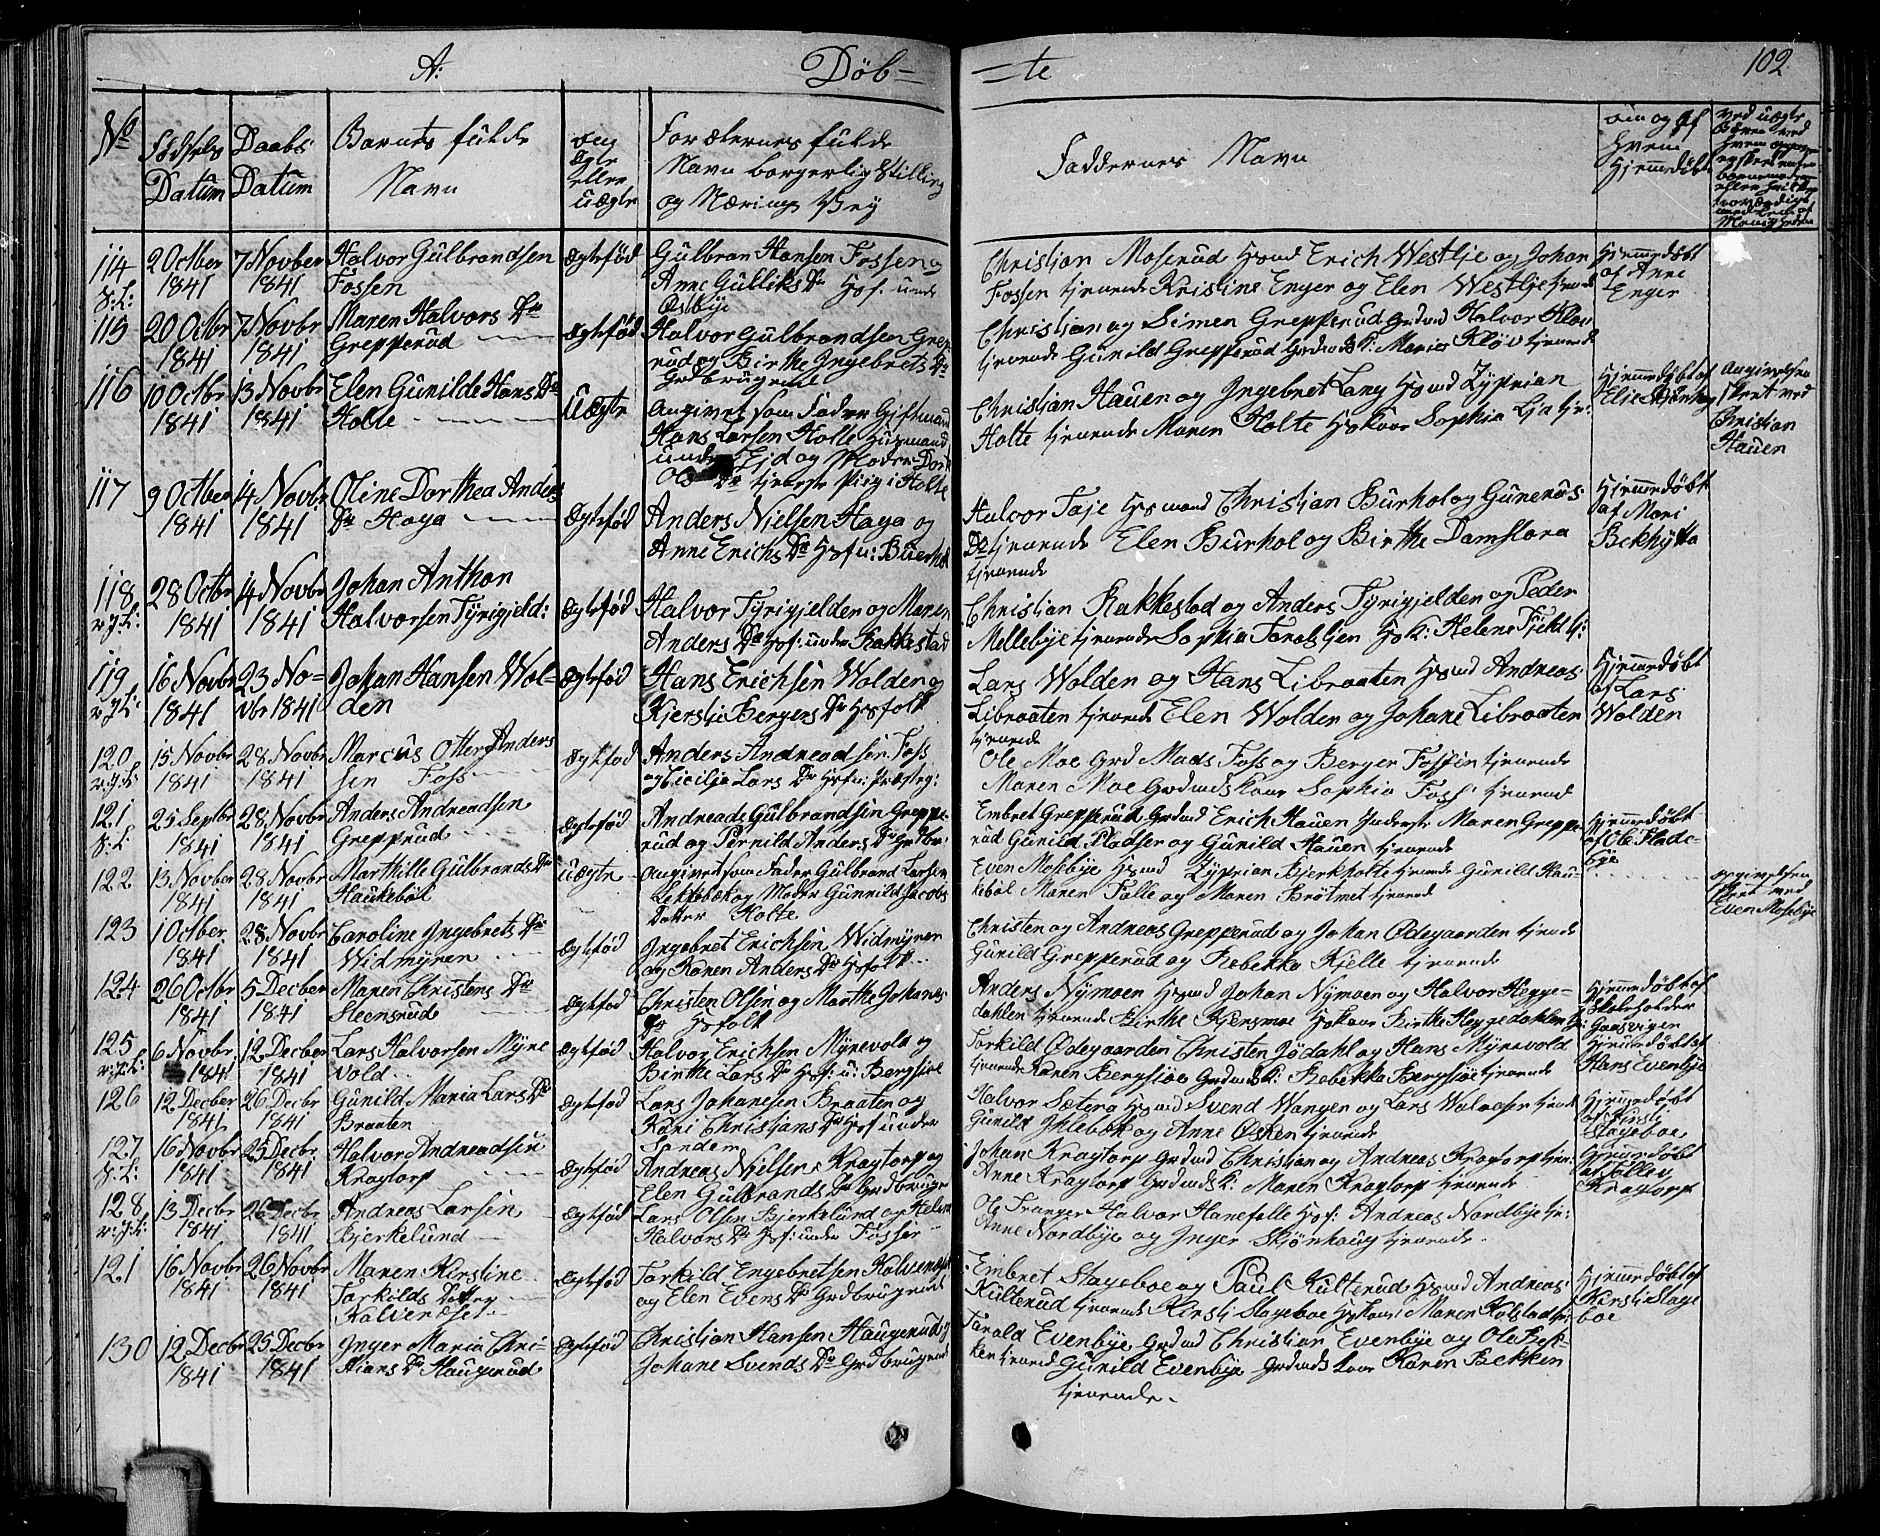 A:
Döb=
=te
102
No
Fødsels Datum
Daabs Datum
Barnets fulde Navn
Ægte eller uægte
Forælernes fulde
Navn borgerlig Stilling
og Nærings Vey
Faddernes Navn
om og af
hvem
Hjemmedøbt
114
2 Octber 1841
7 Novber 1841
Halvor Gulbrandsen
Fossen
Ægtefød
Gulbran Hansen Fossen og
Anne Gulliks Dr Hosf. under
Østbye
Christjan Moserud Hsmd Erich Westlje og Johan
Fossen tjenende Kristine Enger og Elen Westlje
Hjemmedøbt
af Anne
Enger
115
20 Octbr 1841
7 Novbr 1841
Maren Halvors Dr
Grepperud
Ægtefød
Halvor Gulbrandsen Grep
rud og Birthe Ingebrets Dr
Grdbrugende
Christjan og Simen Grepperud Grdmd Halvor Kløv
tjenende Gunild Grepperud Maries Kløv tjenende
116
10 Octbr 1841
13 Novbr 1841
Elen Gunilde Hans Dr
Holte
Uægte
Angivet som Fader Giftmand
Hans Larsen Holle Husmand
under Ejd og Moder Dort
Ols Dr tjeneste Pig i Holte
Christjan Hauen og Ingebret Lang Hsmd Zyprian
Holte tjenende Maren Holte Hskone Sophia Lja tje:
Hjemmedøbt af
Angivelsen
skeet ved
Christian
Hauen
117
9 Octber 1841
14 Novbr 1841
Oline Dorthea Anders
Dr Haga
Ægtefød
Anders Nielsen Haga og
Anne Erichs Dr Hsf u: Buerhol
Halvor Taje Hsmand Christjan Burhol og Gunerius
Do tjenende Elen Burhol og Birthe Damslora
tjenende
Hjemmedøbt
af Mari
Bekhytta
118
28 Octbr 1841
14 Novbr 1841
Johan Anthon
Halvorsen Tyrigjeld:
Ægtefød
Halvor Tyrigjelden og Maren
Anders Dr Hosf: under Rakkestad
Christjan Rakkestad og Anders Tyrigjelden og Peder
Mellebye tjenende Sophia Hsk: Helene
119
16 Novbr 1841
23 No=
vbr 1841
Johan Hansen Wol=
den
Ægtefød
Hans Erichsen Wolden og
Kjerstja Bergers Dr Hsfolk
Lars Wolden og Hans Libraaten Hsmd Andreas
Libraaten tjenende Elen Wolden og Johane Libraaten
tjenende
Hjemmedøbt
af Lars
Wolden
120
15 Novbr 1841
28 Novbr 1841
Marcus Otter Anders
sen Foss
Ægtefød
Anders Andreadsen Foss
og Cicilja Lars Dr Hsf u: Præsteg:
Ole Moe Grd Mads Foss og Berger Fossen tjenende
Maren Moe Grdmdskone Sophia Foss tjenende
121
25 Septbr 1841
28 Novbr 1841
Anders Andreadsen
Grepperud
Ægtefød
Andreads Gulbrandsen Greppe
rud og Pernild Anders Dr
Embret Grepperud Grdmd Erich Hauen Inderste Maren Greppe
rud Gunild Pladsen og Gunild Hauen tjenende
Hjemmedøbt
af Ole
122
13 Novber 1841
28 Novbr 1841
Marthille Gulbrands Dr
Haukebøl
Uægte
Angivet som Fader Gulbrand Larsen
og Moder Gunnild Jacobs
Detter Holte
Even Mosebye Hsmd Zyprian Bjerkholte tjenende Gunild Hau
kebøl Maren Tolle og Maren Brøtmet tjenende
Angivelsen
skeet ved
Even Mosebye
123
1 Octber 1841
28 Novbr 1841
Caroline Ingebrets Dr
Widmyren
Ægtefød
Ingebret Erichsen Widmyren
og Karen Anders Dr Hsfolk
Christen og Andreas Grepperud og Johan Ødegaarden tjenende
Gunild Grepperud og Rebekka Kjelle tjenende
124
26 Octbr 1841
5 Decber 1841
Maren Christens Dr
Steensrud
Ægtefød
Christen Olsen og Marthe Johanes
Dr Hsfolk
Anders Nymoen Hsmd Johan Nymoen og Halvor Hegge=
dahlen tjenende Birthe Kjensmoe Hskone Birthe Heggedahlen tj:
Hjemmedøbt af
Skoleholder
125
6 Novbr 1841
12 Decber 1841
Lars Halvorsen Myre
vold
Ægtefød
Halvor Erichsen Myrevold og
Birthe Lars Dr Hsf: u: Bergsjøe
Torkild Ødegaarden Christen Jødahl og Hans Myrevold
tjenende Karen Bergsjøe Rebekka Bergsjøe tjenende
Hjemmedøbt af
Hans Evenbye
126
12 Decber 1841
26 Decbr 1841
Gunild Maria Lars Dr
Braaten
Ægtefød
Lars Johanesen Braaten og
Kari Christjans Dr Hosf under
Sonder
Halvor Sætera Hsmd Svend Wangen og Lars tjenende
Gunild Ihlebæk og Anne Øsken tjenende
Hjemmedøbt
af Kirsti
Stageboe
127
16 Novbr 1841
25 Decbr 1841
Halvor Andreadsen
Kragtorp
Ægtefød
Andreas Nielsen Kragtorp og
Elen Gulbrands Dr Grdbrugre
Johan Kragtorp Grdmd Christjan og Andreas Kragtorp tjen:
Anne Kragtorp Grdmdsk: Maren Kragtorp tjenende
Hjemmedøbt
af Tollev
Kragtorp
128
13 Decbr 1841
26 Decbr 1841
Andreas Larsen
Bjerkelund
Ægtefød
Lars Olsen Bjerkelund og Helene
Halvors Dr Hsf: under Fosser
Ole Tranger Halvor Hanefelle Hsf: Andreas Nordbye tje:
Anne Nordbye og Inger Skjønhaug tjenende
121
16 Novbr 1841
26 Novbr 1841
Maren Kirstine
Torkilds Detter
Kolvendset
Ægtefød
Torkild Engebretsen Kolvendset
og Elen Evens Dr Grdbrugende
Embret Stageboe og Paul Kulterud Hsmd Andreas
Kulterud tjenende Kirsti Stageboe Hskone: Maren
Hjemmedøbt af
Kirsti Stage
boe
130
12 Decbr 1841
25 Decbr 1841
Inger Maria Chri
stians Dr Haugerud
Ægtefød
Christjan Hansen Haugerud og
Johane Svends Dr Grdbrugende
Torald Evenbye Grdmd Christjan Evenbye og Ole Bek=
ken tjenend Gunild Evenbye Grdmds kone Karen Bekken
tjenende.